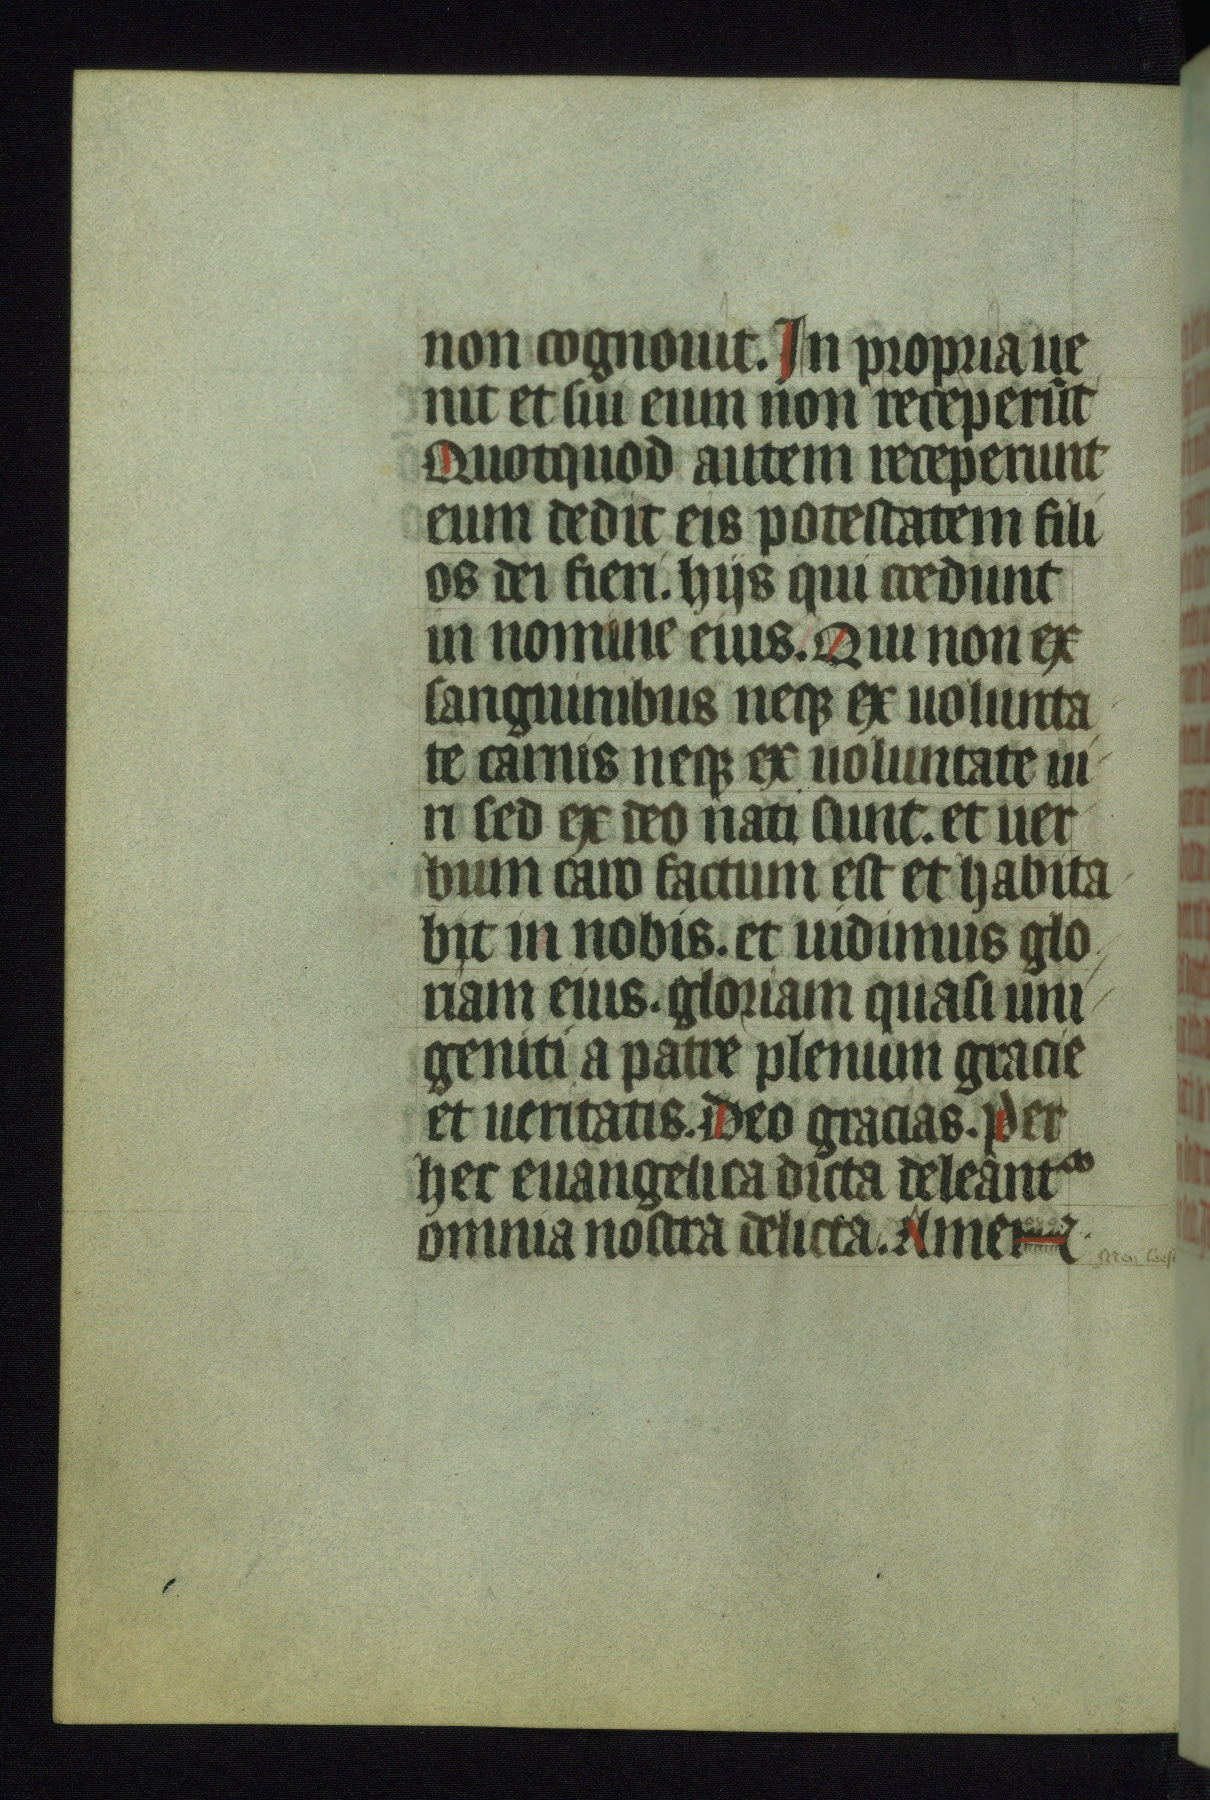 non cognouit. In propria ue
nit et sui eum non receperūt
Quotquod autem receperunt
eum dedit eis potestatem fili
os dei fieri. hijs qui credunt
in nomine eius. Qui non ex
sanguinibus neqꝫ ex uolunta
te carnis neqꝫ ex uoluntate ui
ri sed ex deo nati sunt. et uer
bum caro factum est et habita
bit in nobis. et uidimus glo
riam eius. gloriam quasi uni
geniti a patre plenum gracie
et ueritatis. Deo gracias. Per
hec euangelica dicta deleant᷑
omnia nostra delicta. Amen